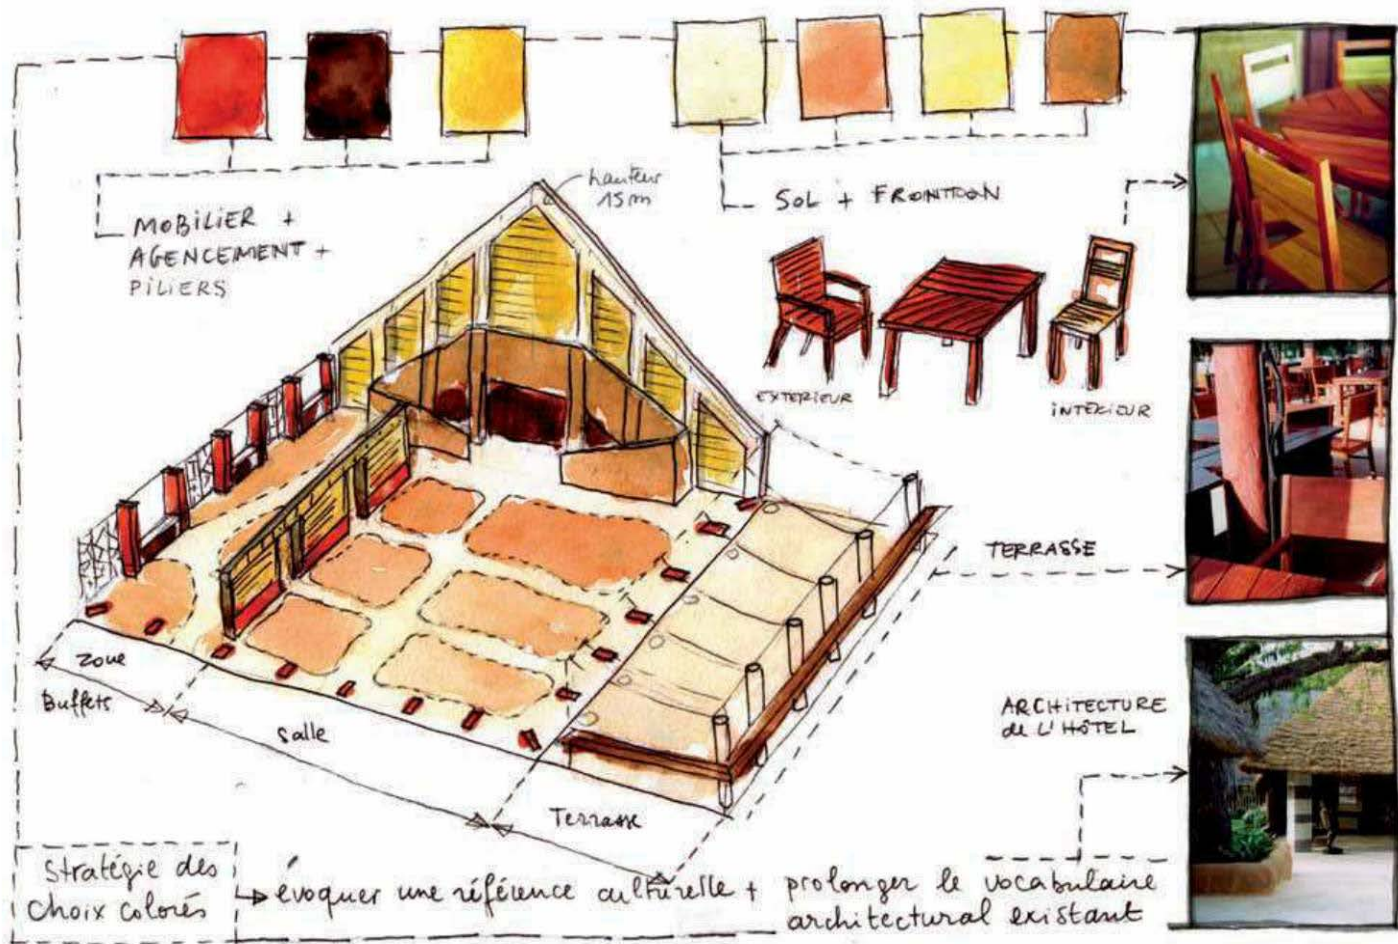 hauteur
15m
MOBILIER +
AGENCEMENT +
PILIERS
SOL + FRONTON
EXTERIEUR
INTERIEUR
TERRASSE
ARCHITECTURE
de L'HÔTEL
Zone
Buffets
Salle
Terrasse
Stratégie des
choix colorés
évoquer une référence culturelle +
prolonger le vocabulaire
architectural existant